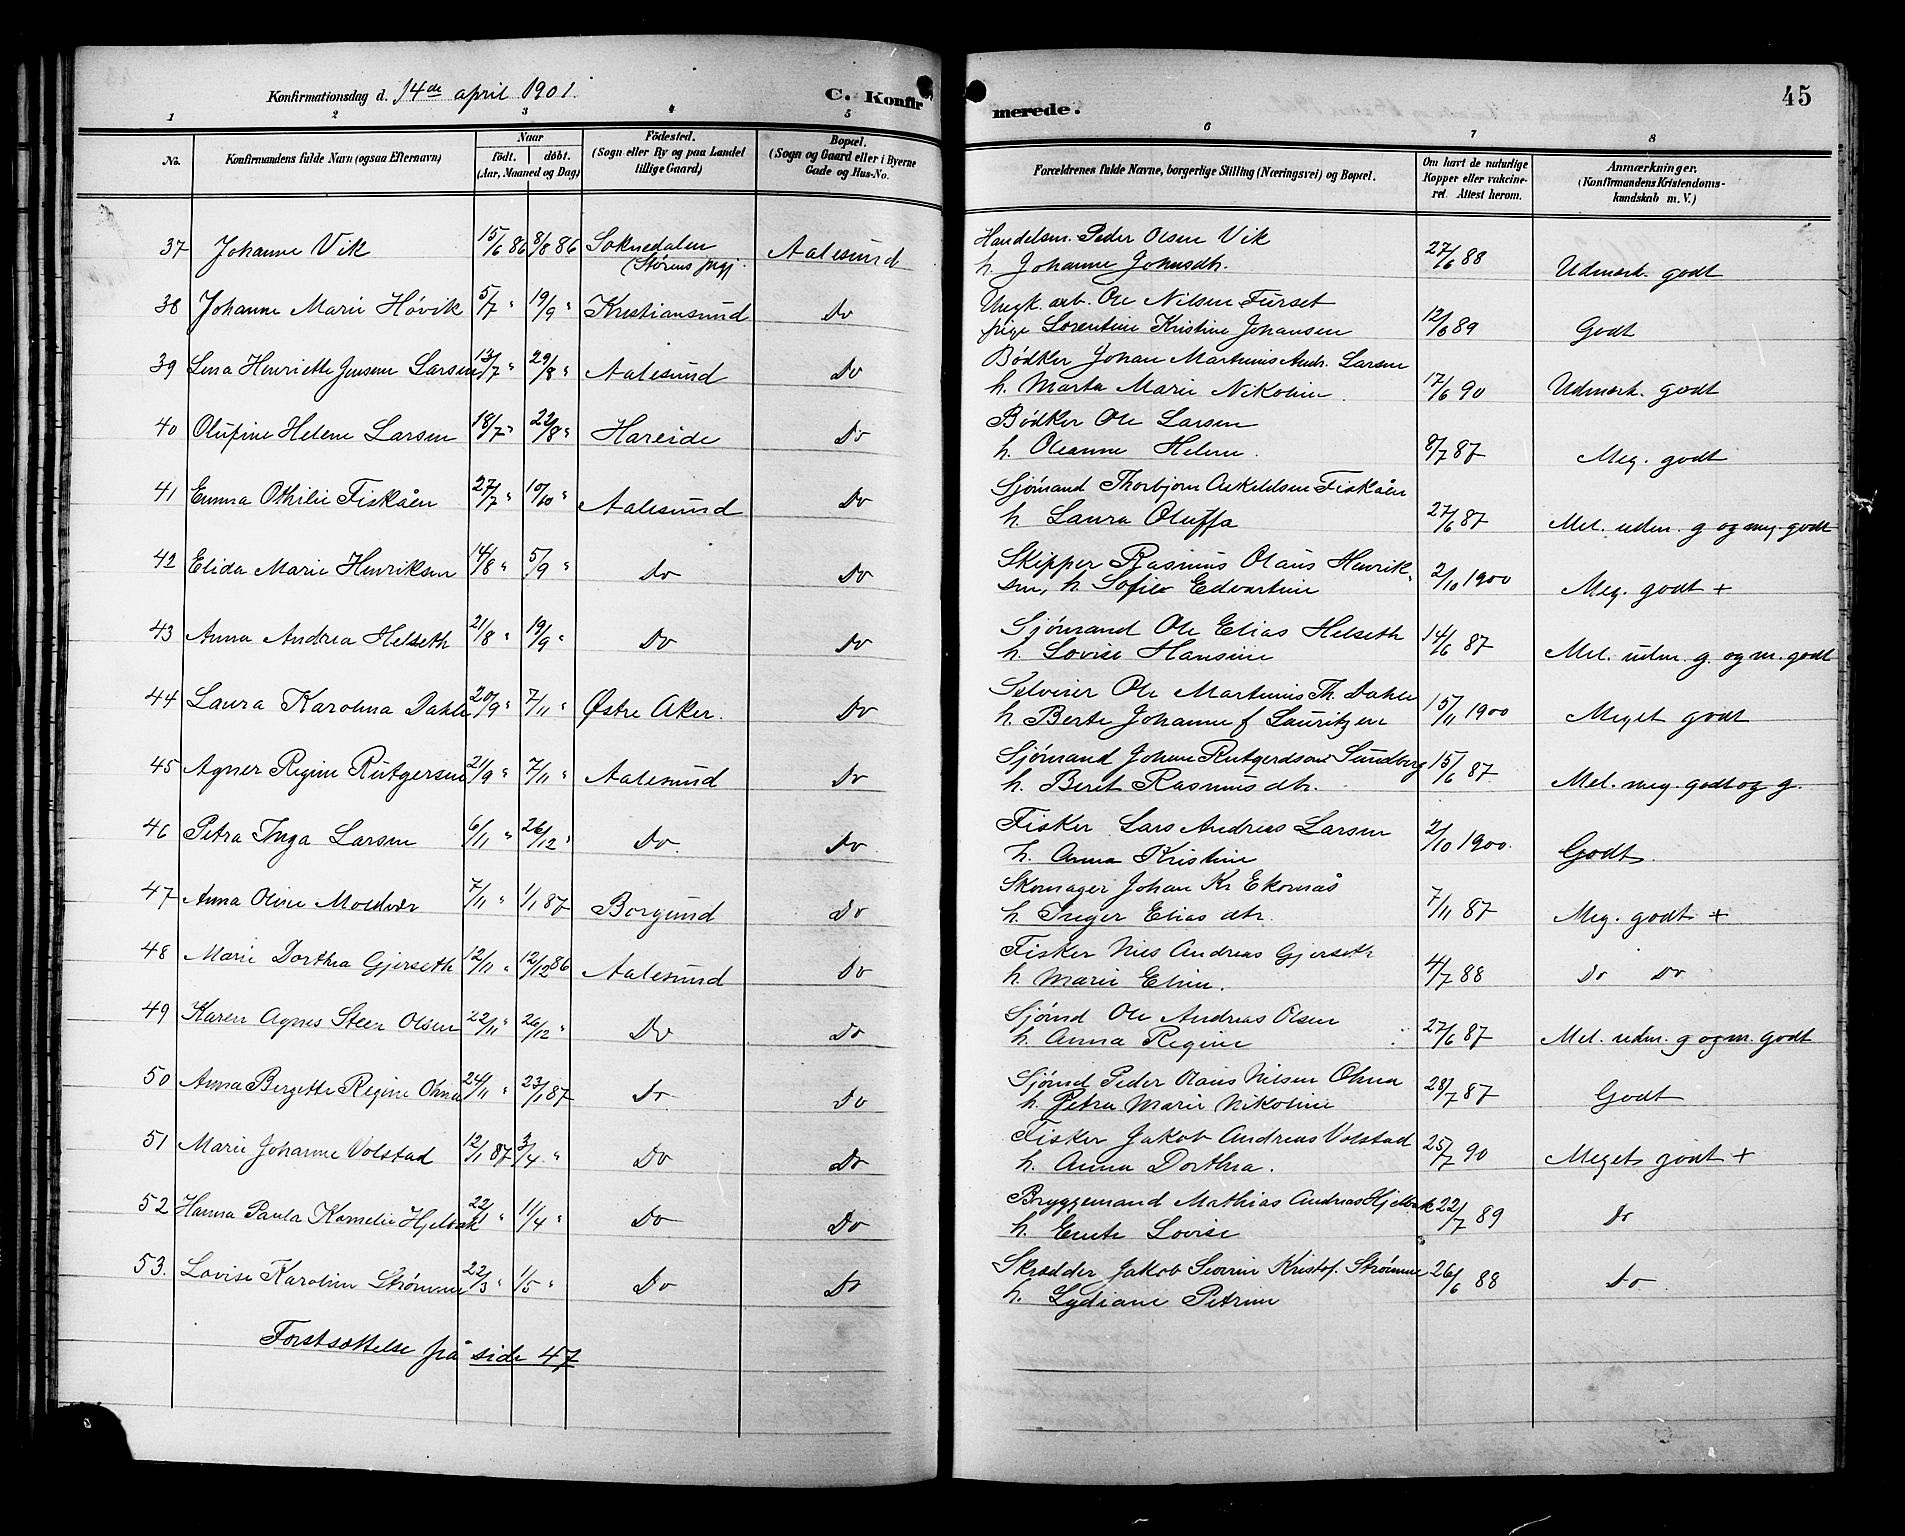 Konfirmationsdag d. 14de april 1901. C. Konfirmerede. 45
1 2 3 4 5 6 7 8
No. Konfirmandens fulde Navn (ogsaa Efternavn) Naar født. døbt. (Aar, Maaned og Dag) Fødested. (Sogn eller By og paa Landet tillige Gaard) Bopæl. (Sogn og Gaard eller i Byerne Gade og Hus-No. Forældrenes fulde Navne, borgerlige Stilling (Næringsvei) og Bopæl. Om havt de naturlige Kopper eller vakcineret. Attest herom. Anmærkninger. (Konfirmandens Kristendomskundskab m. V.)
37 Johanne Vik 15/6 86 8/8 86 Soknedalen (Størens prgj. Aalesund Handelsm. Peder Olsen Vik
h. Johanne Johnsdtr. 27/6 88 Udmærk. godt
38 Johanne Marie Høvik 5/7 " 19/9 " Kristiansund Do Ungk. arb. Ole Nilsen Furset
pige Lorentine Kristine Johansen 12/6 89 Godt
39 Lina Henriette Jensine Larsen 13/7 " 29/8 " Aalesund Do Bødker Johan Martinus Andr. Larsen
h. Marta Marie Nikoline. 17/6 90 Udmærk. godt
40 Olufine Helene Larsen 18/7 " 22/8 " Hareide Do Bødker Ole Larsen
h. Oleanne Helene. 8/7 87 Meg. godt
41 Emma Othilie Fiskåen 27/7 " 10/10 " Aalesund Do Sjømand Thorbjørn Askeldsen Fiskåen
h. Laura Oluffa 27/6 87 Mel. udm. g og meg. godt
42 Elida Marie Henriksen 14/8 " 5/9 " Do Do Skipper Rasmus Olaus Henrik-
sen, h. Sofie Edvartine 2/10 1900 Meg. godt +
43 Anna Andrea Helseth 21/8 " 19/9 " Do Do Sjømand Ole Elias Helseth
h. Lovise Hansine 14/6 87 Mel. udm. g. og m. godt
44 Laura Karolina Dahle 20/9 " 7/11 " Østre Aker. Do Selveier Ole Martinius Th. Dahle
h. Berte Johanne f Lauritzen 15/11 1900 Meget godt
45 Agnes Regine Rutgersen 21/9 " 7/11 " Aalesund Do Sjømand Johan Rutgerdsen Sundborg
h. Beret Rasmusdtr. 15/6 87 Mel. meg. godt og g.
46 Petra Inga Larsen 6/11 " 26/12 " Do. Do. Fisker Lars Andreas Larsen
h. Anna Kristine 2/10 1900. Godt.
47 Anna Oline Moldvær 7/11 " 1/1 87 Borgund Do Skomager Johan Kr Ekornås
h. Inger Elias dtr. 7/11 87 Meg. godt +
48 Marie Dorthea Gjerseth 12/11 " 12/12 86 Aalesund Do Fisker Nils Andreas Gjerseth
h. Marie Eline. 4/7 88 Do Do
49 Karen Agnes Steen Olsen 22/11 " 26/12 " Do Do Sjømd Ole Andreas Olsen
h. Anna Regine 27/6 87 Mel. udm. g og m. godt
50 Anna Bergette Regine Ohna 24/11 " 23/1 87 Do Do Sjømd Peder Olaus Nilsen Ohna
h. Petra Marie Nikoline 28/7 87 Godt
51 Marie Johanne Volstad 12/1 87 3/4 " Do Do Fisker Jakob Andreas Volstad
h. Anna Dorthea. 25/7 90 Meget godt +
52 Hanna Paula Kamelie Hjelbak 22/1 " 11/4 " Do Do Bryggemand Mathias Andreas Hjelbak
h. Lovise 22/7 89 Do
53. Lovise Karoline Strømme 22/3 " 1/5 " Do Do Skrædder Jakob Severin Kristof. Strømme
h. Lydiane Petrine 26/6 88 Do
Forstsættelse på side 47